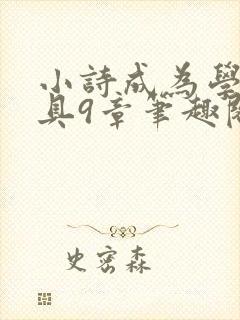 小詩成為學
具9章筆趣閣
史密森